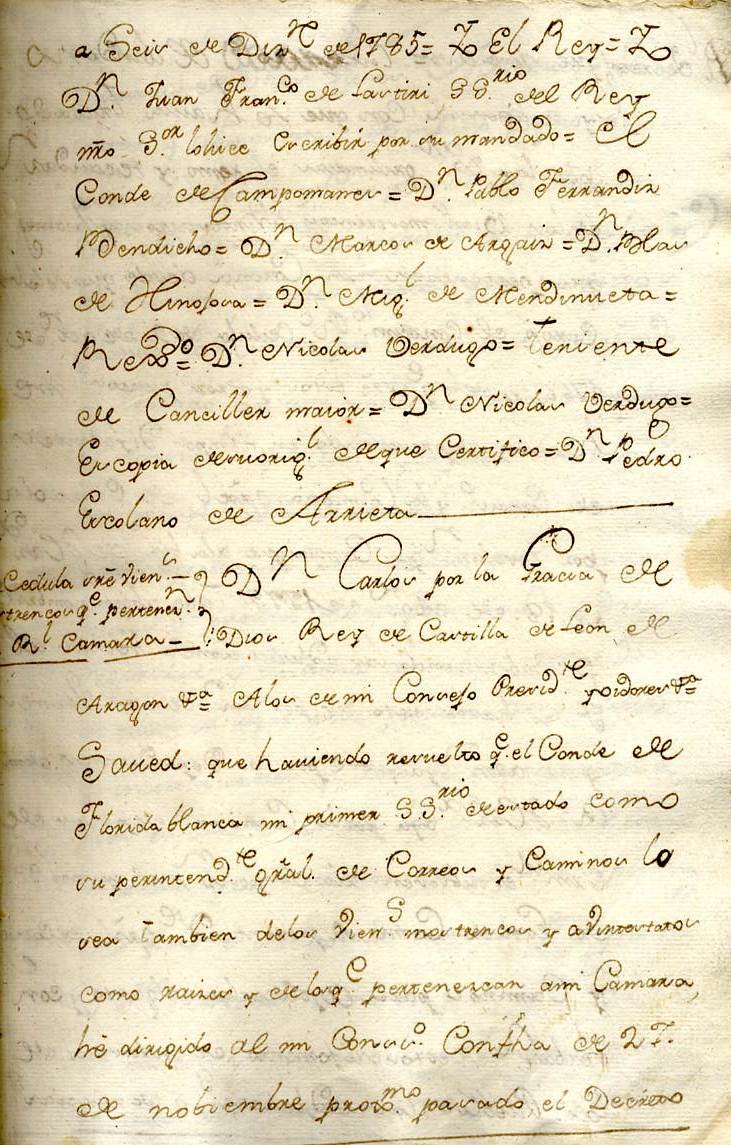 a Seis de Dizre. de 1785= Yo El Rey= Yo
Dn. Juan Franco. de Lastiri SSrio. del Rey
nro Sor. lohice escribir por su mandado= el
Conde de Campomanes= Dn. Pablo Ferrandiz
Bendicho= Dn. Marcos de Argaiz= Dn. Blas
de Hinojosa= Dn. Migl. de Mendinueta=
Rexdo.= Dn. Nicolas Verdugo= teniente
de Canciller maior= Dn. Nicolas Verdugo=
Es copia desu origl. deque Certifico= Dn. Pedro
Escolano de Arrieta
Cedula sre viens.
trencos qe. pertenen.
Rl. Camara
Dn Carlos por la Gracia de
Dios Rey de Castilla de Leon de
Aragon &a Alos de mi Consejo Presidte. yoidores &a
Saved: que haviendo resuelto qe. el Conde de
Florida blanca mi primer SSrio. de estado como
superintendte. gral. de Correos y Caminos lo
sea tambien delos viens mostrencos y avintestatos
como raizes y delos qe pertenezcan ami Camara,
hé dirigido al mi Conso. Conftha de 27.
de nobiembre proxmo. pasado el Decreto